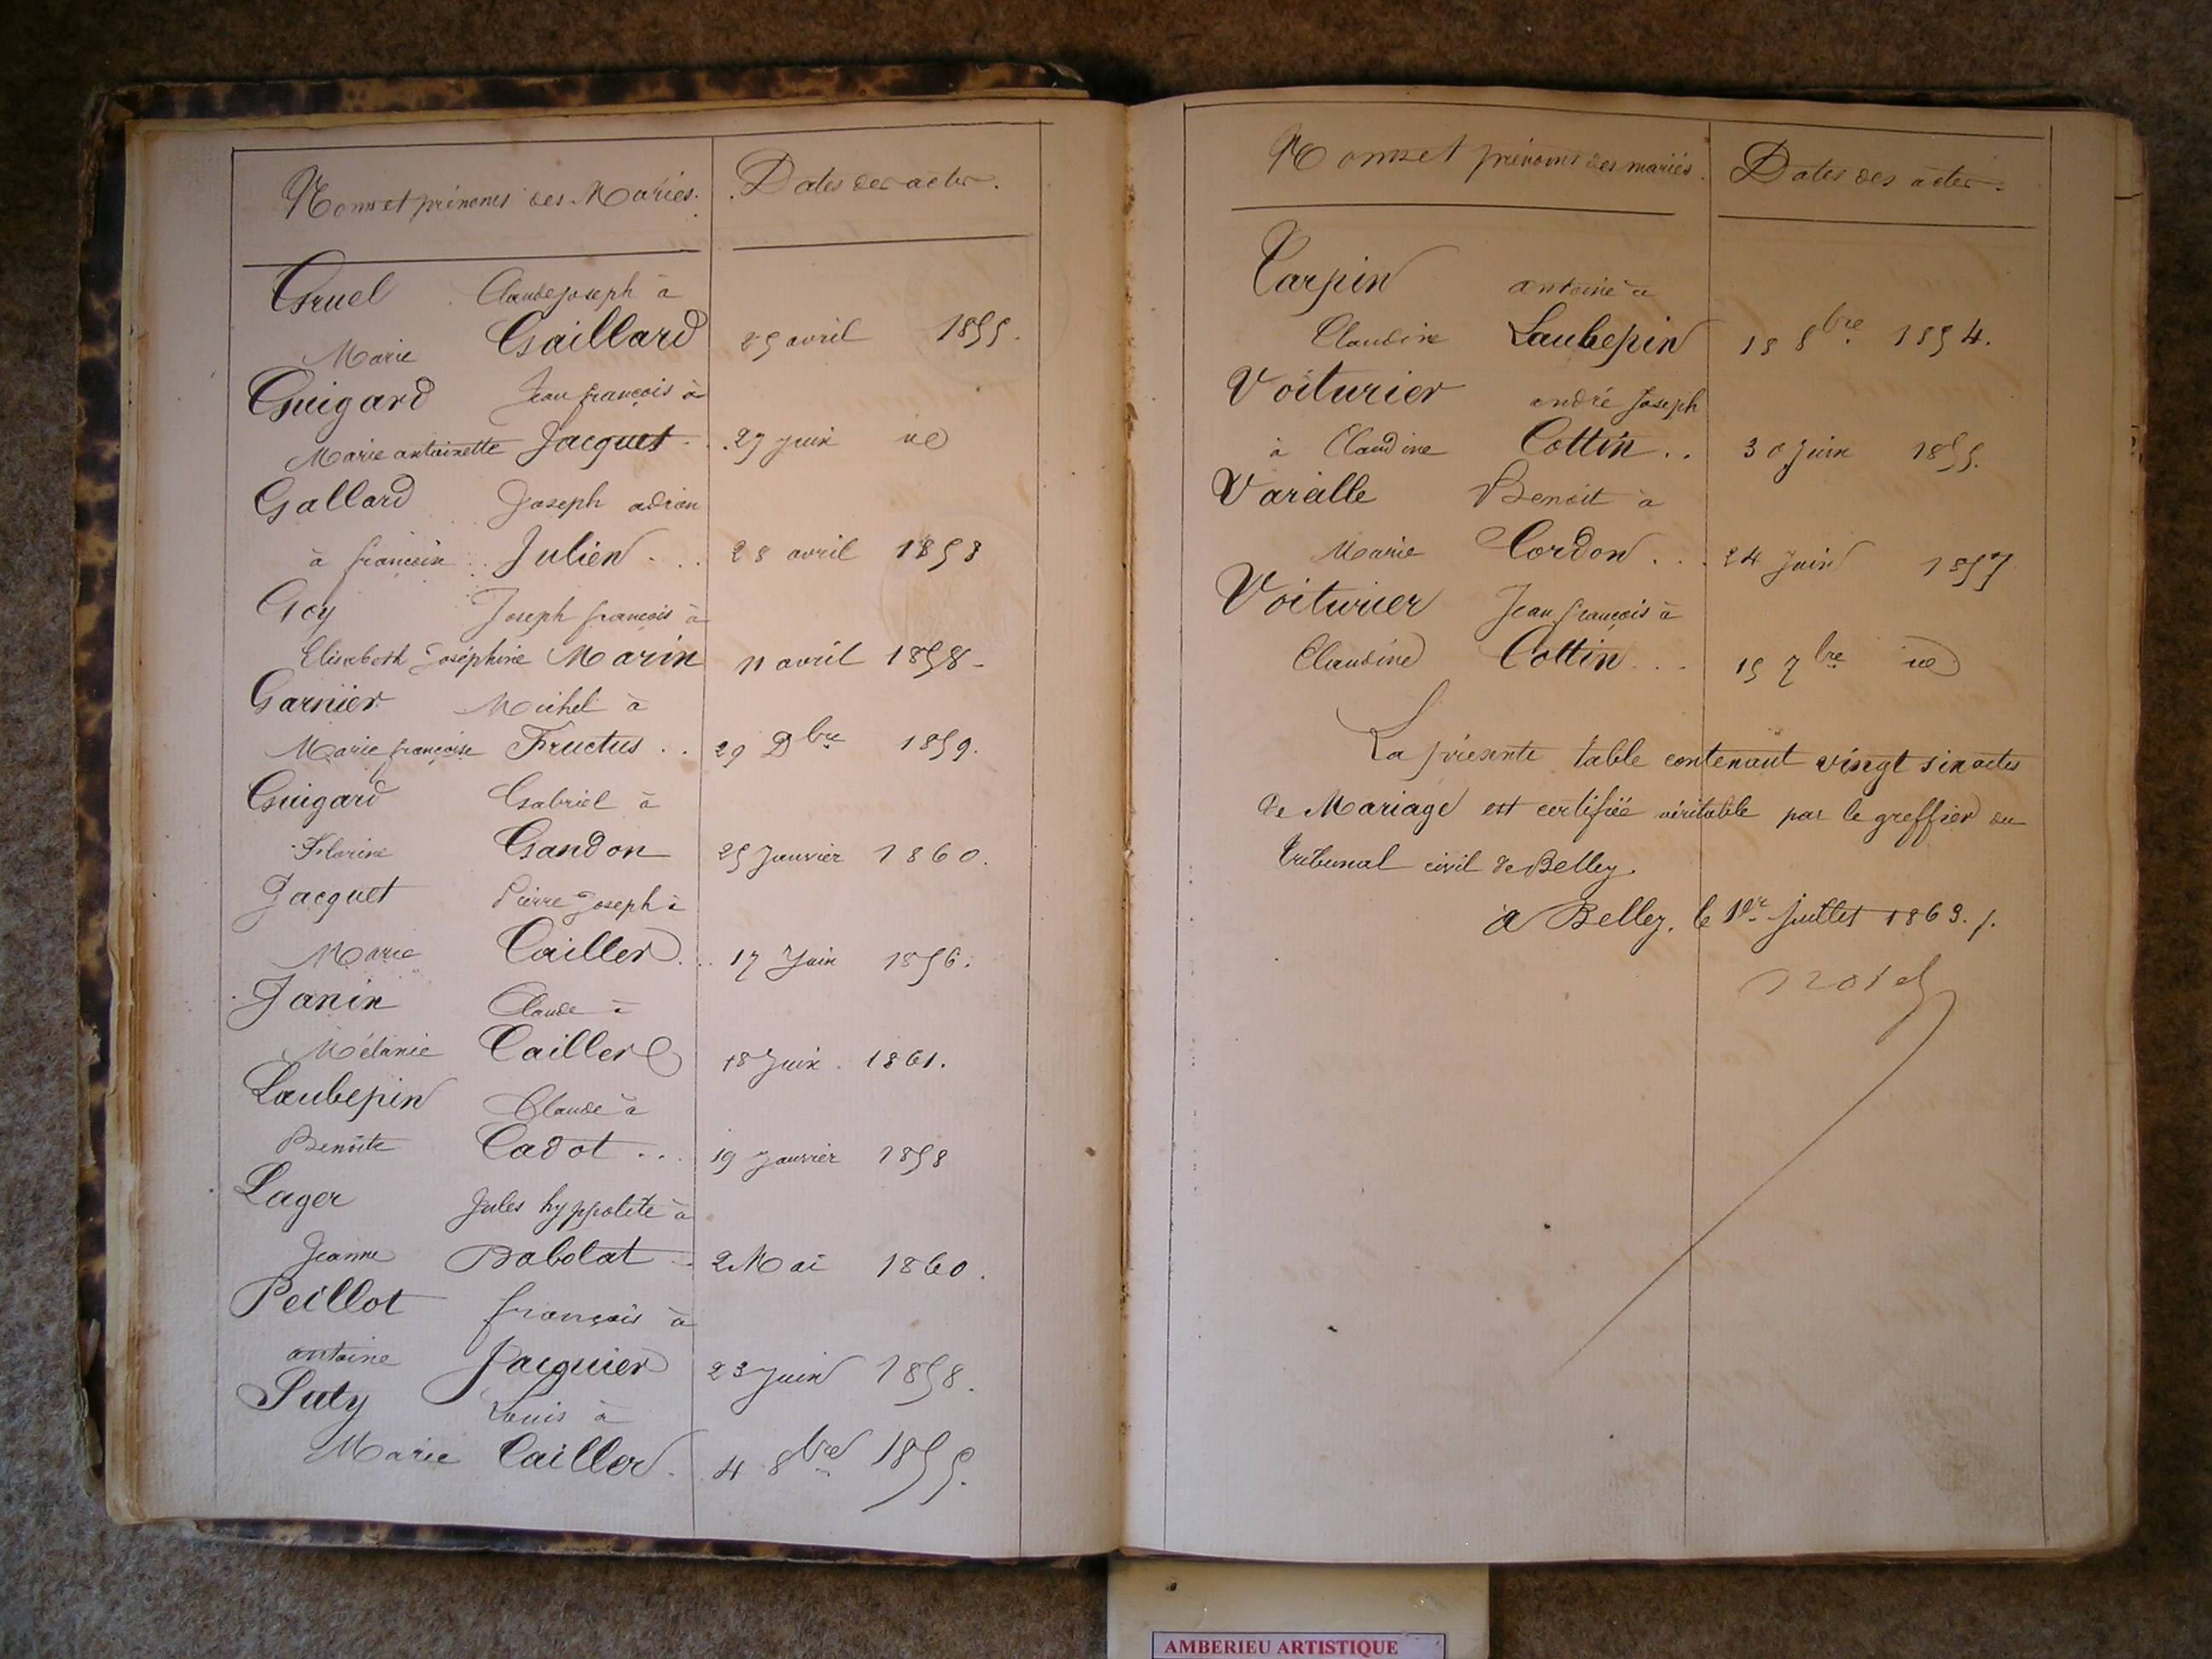 Noms et prénoms des Mariés.
Dates des actes.
Gruel Claude joseph à
Marie Gaillard 25 avril 1855.
Guigard Jean françois à
Marie antoinette Jacquet . . 27 juin id
Gallard Joseph adrien
à françoise . . Julien . . . 28 avril 1858
Goy Joseph françois à
Elisabeth Joséphine Marin 11 avril 1858 -
Garnier Michel à
Marie françoise Fructus . . 29 Dbre 1859.
Guigard Gabriel à
Florine Gandon 25 Janvier 1860.
Jacquet Pierre Joseph à
Marie Cailler . . 17 Juin 1856.
Janin Claude à
Mélanie Cailler 18 Juin . 1861.
Laubepin Claude à
Benoite Cadot . . . 19 Janvier 1858
Lager Jules hyppolite à
Jeanne Babolat . . 2 Mai 1860.
Peillot françois à
antoine Jacquier 23 Juin 1858.
Suty Louis à
Marie Cailler . 4 8bre 1855.
Noms et prénoms des mariés.
Dates des actes.
Carpin antoine à
Claudine Laubepin 18 8bre 1854.
Voiturier andré Joseph
à Claudine Cottin . . 30 Juin 1855.
Vareille Benoit à
Marie Cordon . . . 24 Juin 1857
Voiturier Jean françois à
Claudine Cottin . . . 15 7bre id
La présente table contenant vingt six actes
de Mariage est certifiée véritable par le greffier du
tribunal civil de Belley.
a Belley, le 1er Juillet 1863. /.
AMBERIEU ARTISTIQUE